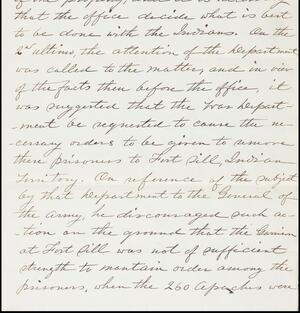 that the office decide what is best
to be done with the Indians. On the
2nd ultimo, the attention of the Department
was called to the matter, and in view
of the facts then before the office, it
was suggested that the War Depart-
-ment be requested to cause the ne-
cessary orders to be given to remove
these prisoners to Fort Sill, Indian
Territory. On reference of the subject
by that Department to the General of
the Army, he discouraged such ac-
tion on the ground that the Garrison
at Fort Sill was not of sufficient
strength to mantain order among the
prisoners, when the 260 Apaches were